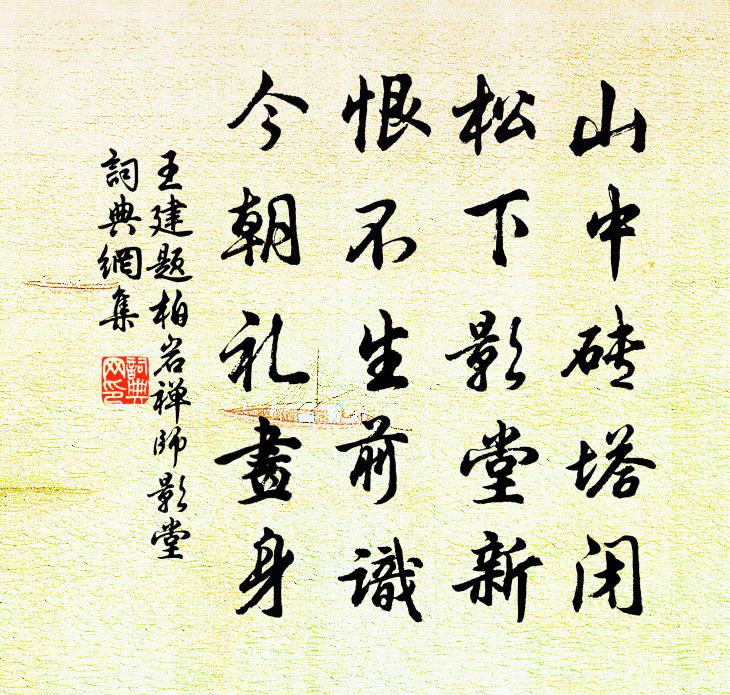 山中砖塔闭
松下影堂新
恨不生前識
今朝礼畫身
王建题柏岩禅师影堂
詞典網集
詞典
网印